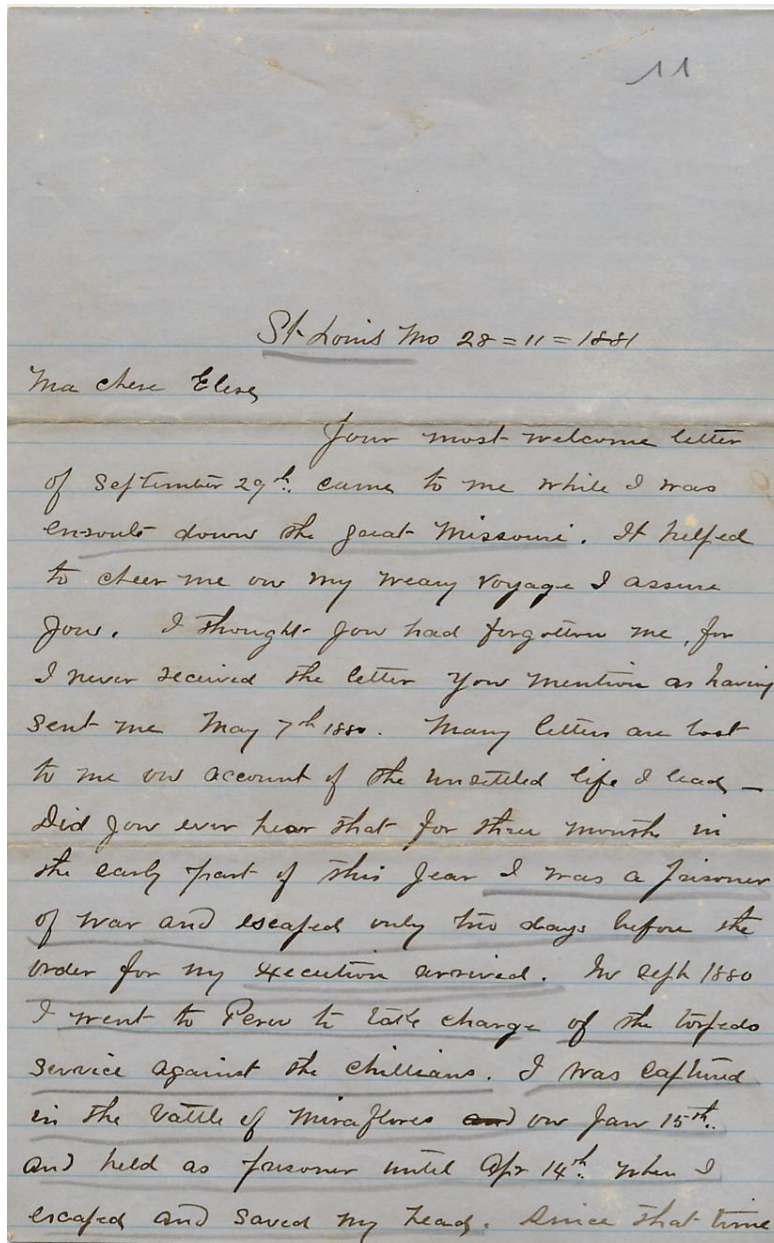 11
St. Louis Mo 28=11=1881
Ma chere Elise,
Your most welcome letter
of September 29th. came to me while I was
en-route down the great Missouri. It helped
to cheer me on my weary voyage I assure
you. I thought you had forgotten me, for
I never received the letter you mention as having
sent me May 7th 1880. Many letters are lost
to me on account of the unsettled life I lead—
Did you ever hear that for three months in
the early part of this year I was a prisoner
of war and escaped only two days before the
order for my execution arrived. In Sept 1880
I went to Peru to take charge of the torpedo
service against the Chillians. I was captured
in the battle of Miraflores and on Jan 15th.
and held as prisoner until Apr 14th. when I
escaped and saved my head. Since that time